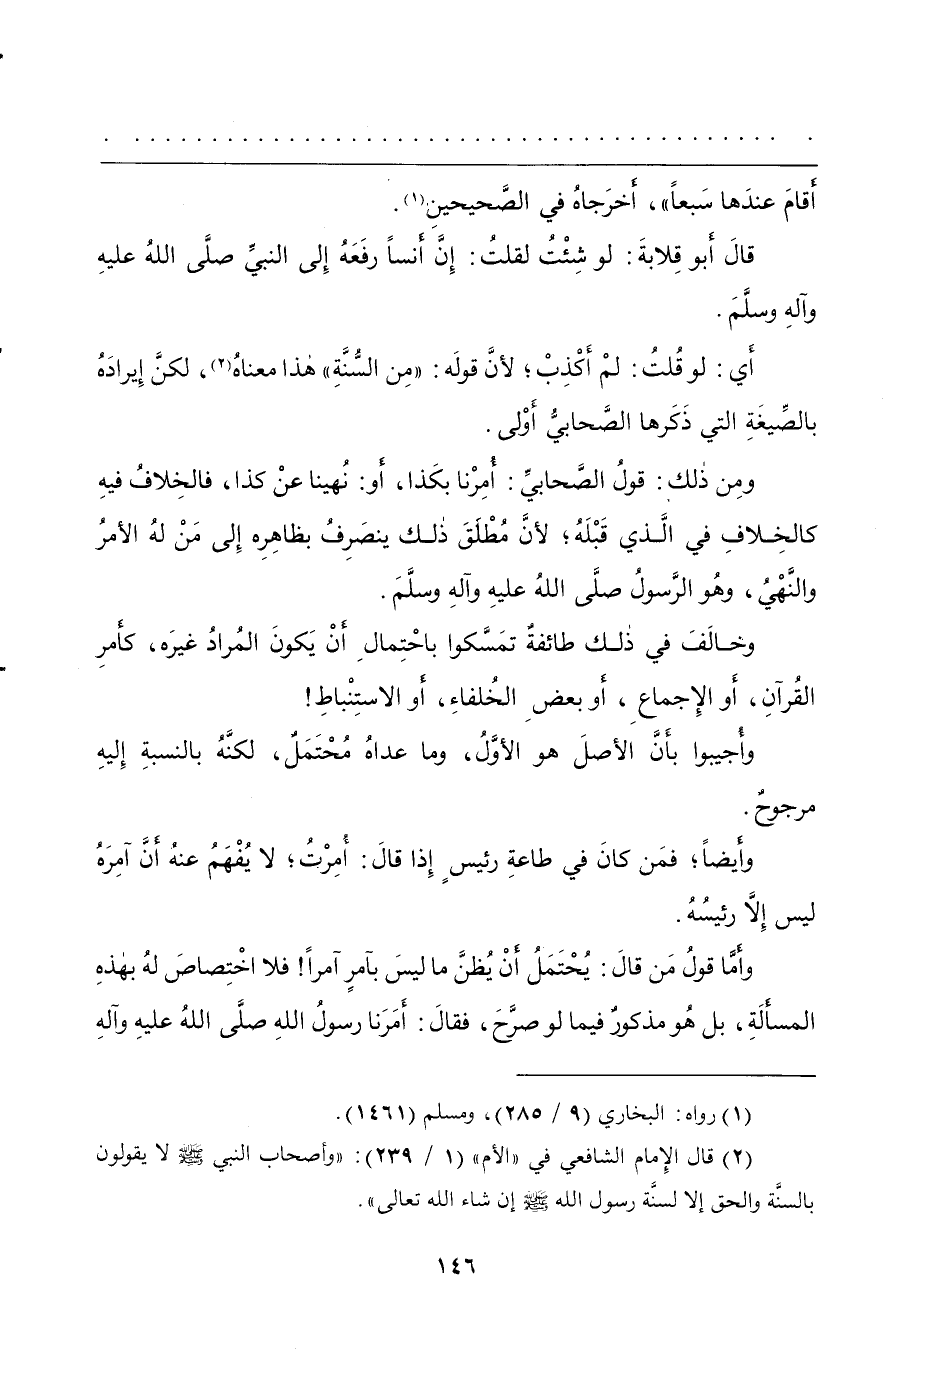 أَقامَ عندَها سَبعاً»، أَخرَجاهُ في الصَّحيحينِ(١).
قالَ أَبو قِلابةَ: لو شِئْتُ لقلتُ: إِنَّ أَنساً رفَعَهُ إِلى النبيِّ صلَّى اللهُ عليهِ
وآلهِ وسلَّمَ.
أَي: لو قُلتُ: لمْ أَكْذِبْ؛ لأنَّ قولَه: «مِن السُّنَّةِ» هٰذا معناهُ(٢)، لكنَّ إِيرادَهُ
بالصِّيغَةِ التي ذَكَرها الصَّحابيُّ أَوْلى.
ومِن ذٰلك: قولُ الصَّحابيِّ: أُمِرْنا بكَذا، أَو: نُهينا عنْ كذا، فالخِلافُ فيهِ
كالخِلافِ في الَّذي قَبْلَهُ؛ لأنَّ مُطْلَقَ ذٰلك ينصَرِفُ بظاهِرِه إِلى مَنْ لهُ الأمرُ
والنَّهْيُ، وهُو الرَّسولُ صلَّى اللهُ عليهِ وآلهِ وسلَّمَ.
وخالَفَ في ذٰلك طائفةٌ تمَسَّكوا باحْتِمالِ أَنْ يَكونَ المُرادُ غيرَه، كأَمرِ
القُرآنِ، أَو الإِجماعِ، أَو بعضِ الخُلفاءِ، أَو الاستِنْباطِ!
وأُجيبوا بأَنَّ الأصلَ هو الأوَّلُ، وما عداهُ مُحْتَمَلٌ، لكنَّهُ بالنسبةِ إِليهِ
مرجوحٌ.
وأَيضاً؛ فمَن كانَ في طاعةِ رئيسٍ إِذا قالَ: أُمِرْتُ؛ لا يُفْهَمُ عنهُ أَنَّ آمِرَهُ
ليس إِلَّا رئيسُهُ.
وأَمَّا قولُ مَن قالَ: يُحْتَمَلُ أَنْ يُظنَّ ما ليسَ بآمرٍ آمراً! فلا اخْتِصاصَ لهُ بهٰذهِ
المسأَلَةِ، بل هُو مذكورٌ فيما لو صرَّحَ، فقالَ: أَمَرَنا رسولُ اللهِ صلَّى اللهُ عليهِ وآلهِ
(١) رواه: البخاري (٩ / ٢٨٥)، ومسلم (١٤٦١).
(٢) قال الإمام الشافعي في «الأم» (١ / ٢٣٩): «وأصحاب النبي ﷺ لا يقولون
بالسنَّة والحق إلا لسنَّة رسول الله ﷺ إن شاء الله تعالى».
١٤٦